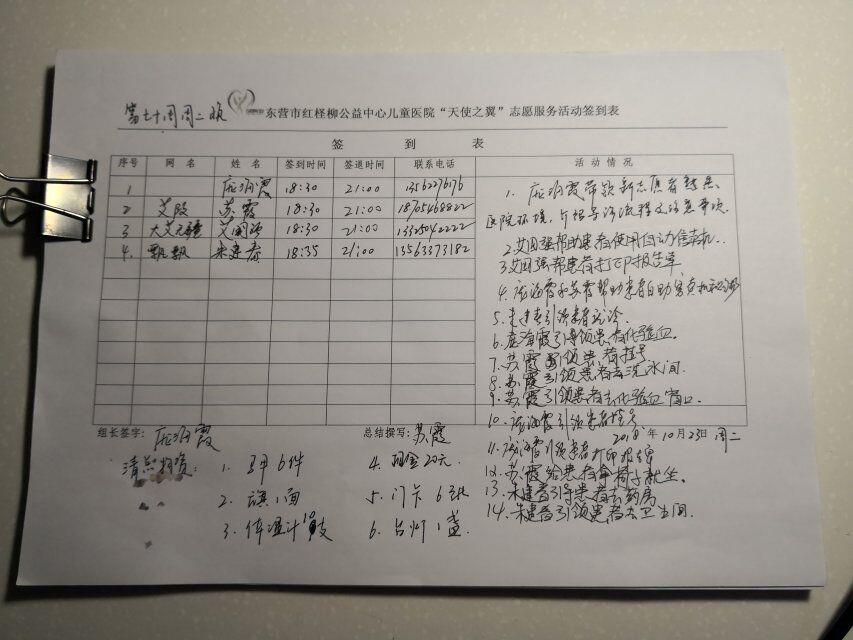 第七十周周二班
东营市红柽柳公益中心儿童医院“天使之翼”志愿服务活动签到表
签 到 表
序号 网 名 姓 名 签到时间 签退时间 联系电话 活 动 情 况
1 庞海霞 18:30 21:00
2 艾段 苏霞 18:30 21:00 18705468822
3 艾国强 18:30 21:00 13325042222
4. 甄甄 朱建春 18:35 21:00 13563373182
1. 庞海霞带领新志愿者熟悉
医院环境，介绍导诊流程及注意事项.
2.艾国强帮助患者使用自动售货机.
3.艾国强帮患者打印报告单.
4.庞海霞和苏霞帮助患者自助
5.朱建春引领患者就诊.
6.庞海霞引导领患者化验血.
7.苏霞引领患者挂号
8.苏霞引领患者去洗水间.
9.苏霞引领患者去化验血窗口.
10.庞海霞引领患者挂号
组长签字：庞海霞 总结撰写：苏霞 2018年10月23日 周二
11.庞海霞引领患者打印报告
12.苏霞给患者拿椅子就坐.
13.朱建春引导患者去药房
14.朱建春引领患者去卫生间.
清点物资：1. 马甲6件 4. 现金20元.
2. 旗1面 5. 门卡6张
3. 体温计10支 6. 台灯1盏.